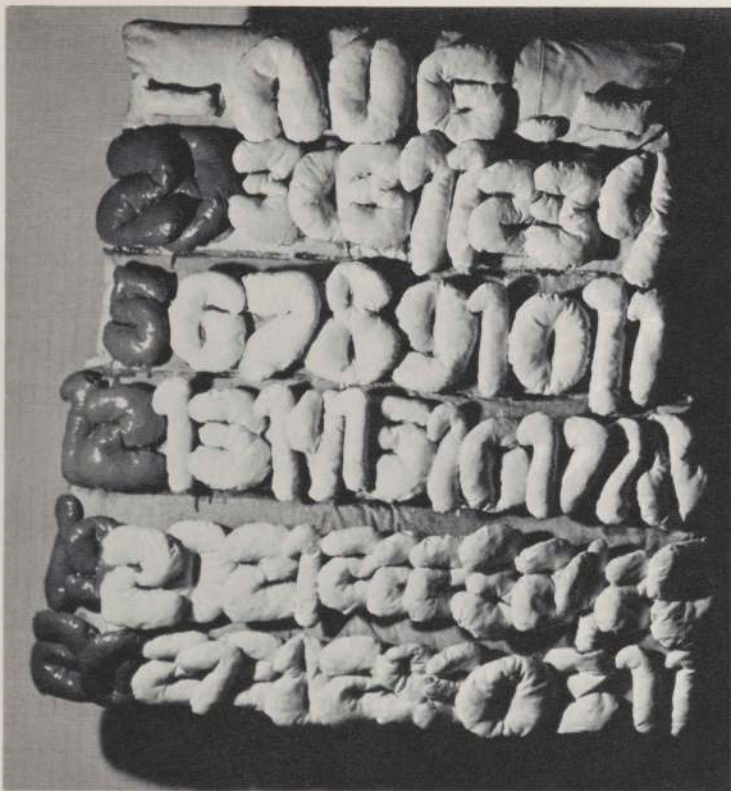 AUG
29 30 31 1 2 3 4
5 6 7 8 9 10 11
12 13 14 15 16 17 18
19 20 21 22 23 24 25
26 27 28 29 30 31 1